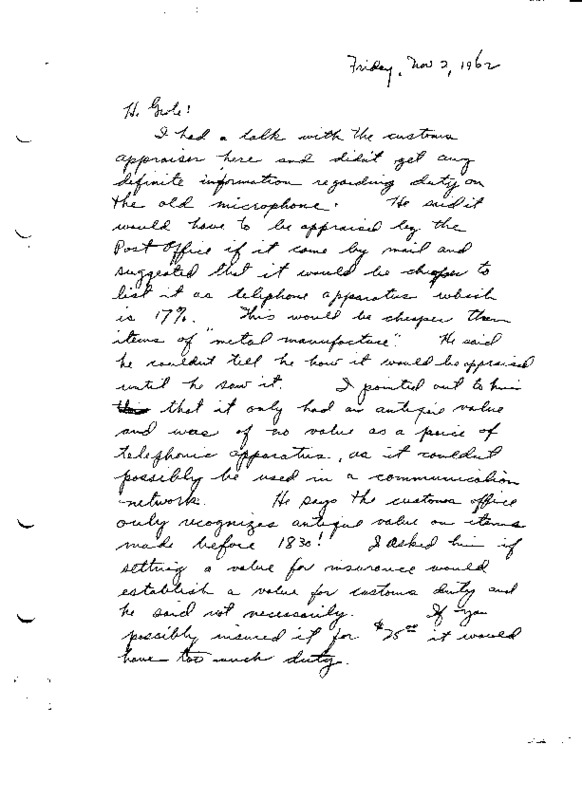 Friday, Nov 2, 1962
H. Gode!
I had a talk with the customs
appraiser here and didn't get any
definite information regarding duty on
the old microphone. He said it
would have to be appraised by the
Post Office if it came by mail and
suggested that it would be cheaper to
list it as telephone apparatus which
is 17%. This would be cheaper than
items of "metal manufacture". He said
he couldn't tell he how it would be appraised
until he saw it. I pointed out to him
that it only had an antique value
and was of no value as a peice of
telephonic apparatus, as it couldn't
possibly be used in a communication
network. He says the customs office
only recognizes antique value on items
made before 1830! I asked him if
setting a value for insurance would
establish a value for customs duty and
he said not necessarily. If you
possibly insured it for $25.00 it would
have too much duty.